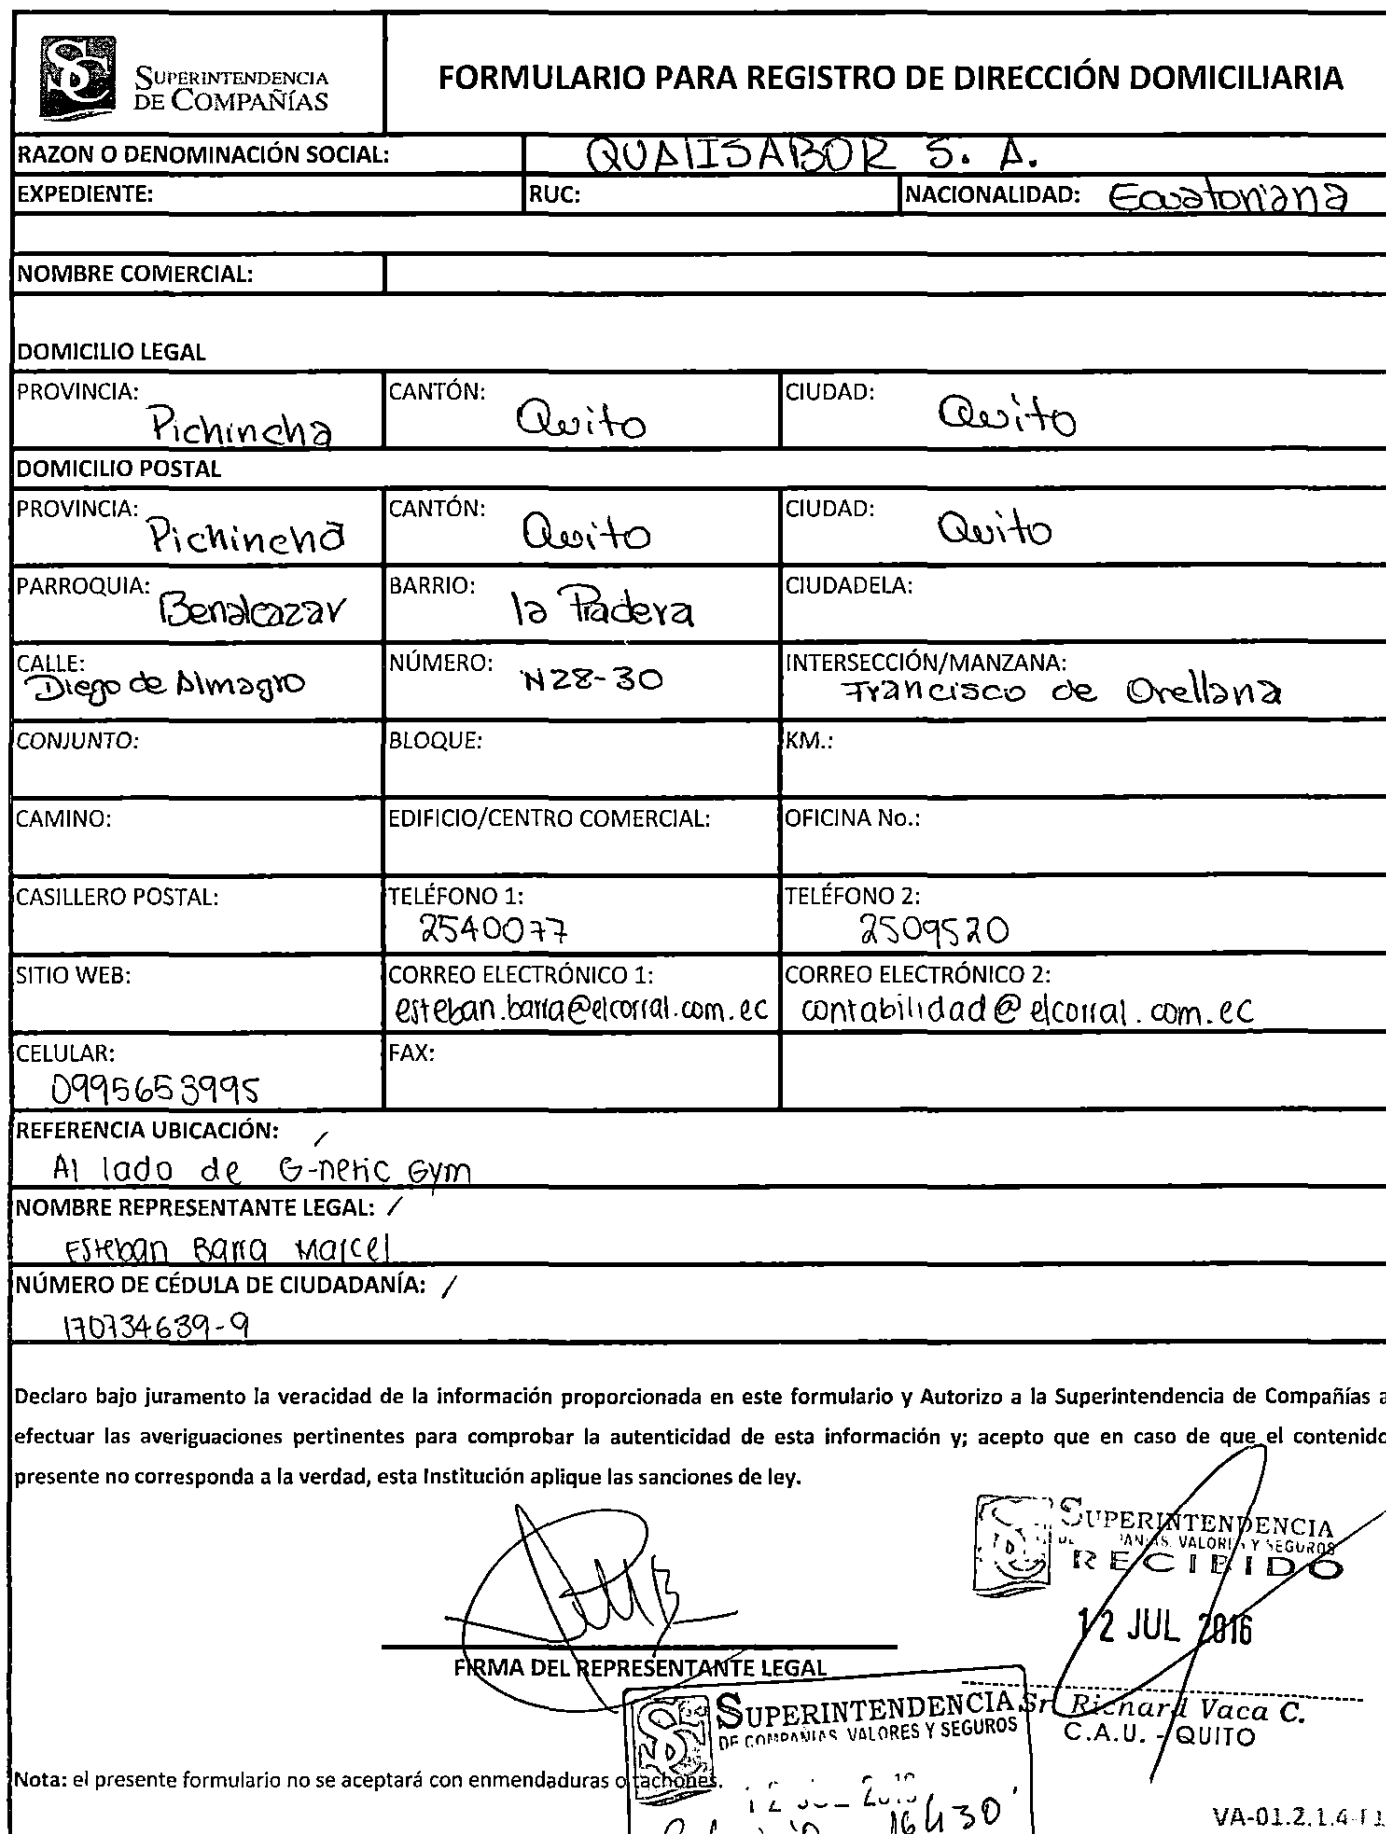 SUPERINTENDENCIA
DE COMPAÑÍAS
FORMULARIO PARA REGISTRO DE DIRECCIÓN DOMICILIARIA
RAZON O DENOMINACIÓN SOCIAL: QUALISABOR S. A.
EXPEDIENTE: RUC: NACIONALIDAD: Ecuatoriana
NOMBRE COMERCIAL:
DOMICILIO LEGAL
PROVINCIA: Pichincha CANTÓN: Quito CIUDAD: Quito
DOMICILIO POSTAL
PROVINCIA: Pichincha CANTÓN: Quito CIUDAD: Quito
PARROQUIA: Benalcazar BARRIO: la Pradera CIUDADELA:
CALLE: Diego de Almagro NÚMERO: N28-30 INTERSECCIÓN/MANZANA: Francisco de Orellana
CONJUNTO: BLOQUE: KM.:
CAMINO: EDIFICIO/CENTRO COMERCIAL: OFICINA No.:
CASILLERO POSTAL: TELÉFONO 1: 2540077 TELÉFONO 2: 2509520
SITIO WEB: CORREO ELECTRÓNICO 1: esteban.barra@elcorral.com.ec CORREO ELECTRÓNICO 2: contabilidad@elcorral.com.ec
CELULAR: 0995653995 FAX:
REFERENCIA UBICACIÓN:
Al lado de G-neric Gym
NOMBRE REPRESENTANTE LEGAL:
Esteban Barra Marcel
NÚMERO DE CÉDULA DE CIUDADANÍA:
170734639-9
Declaro bajo juramento la veracidad de la información proporcionada en este formulario y Autorizo a la Superintendencia de Compañías a
efectuar las averiguaciones pertinentes para comprobar la autenticidad de esta información y; acepto que en caso de que el contenido
presente no corresponda a la verdad, esta Institución aplique las sanciones de ley.
SUPERINTENDENCIA
VALORES Y SEGUROS
RECIBIDO
12 JUL 2016
FIRMA DEL REPRESENTANTE LEGAL
Sr. Richard Vaca C.
C.A.U. - QUITO
SUPERINTENDENCIA
DE COMPAÑIAS VALORES Y SEGUROS
Nota: el presente formulario no se aceptará con enmendaduras o tachones.
16h30'
VA-01.2.1.4-F1